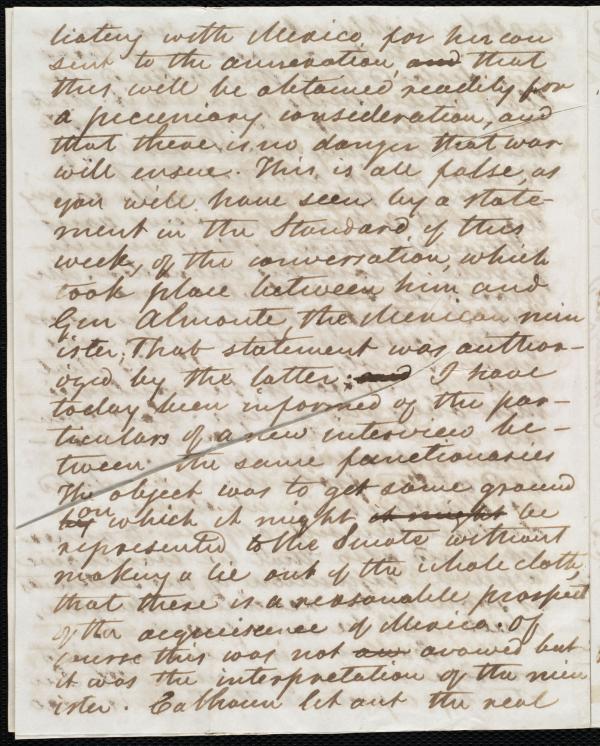 tiating with Mexico for her con
sent to the annexation, and that
this will be obtained readily for
a pecuniary consideration, and
that there is no danger that war
will ensue. This is all false, as
you will have seen by a state-
ment in the Standard of this
week, of the conversation, which
took place between him and
Gen Almonte, the Mexican min
ister; That statement was author-
ized by the latter; and I have
today been informed of the par-
ticulars of a new interview be-
tween the same functionaries
The object was to get some ground
by on which it might it might be
represented to the Senate without
making a lie out of the whole cloth,
that there is a reasonable prospect
of the acquiescence of Mexico. Of
course this was not avowed but
it was the interpretation of the min
ister. Calhoun let out the real